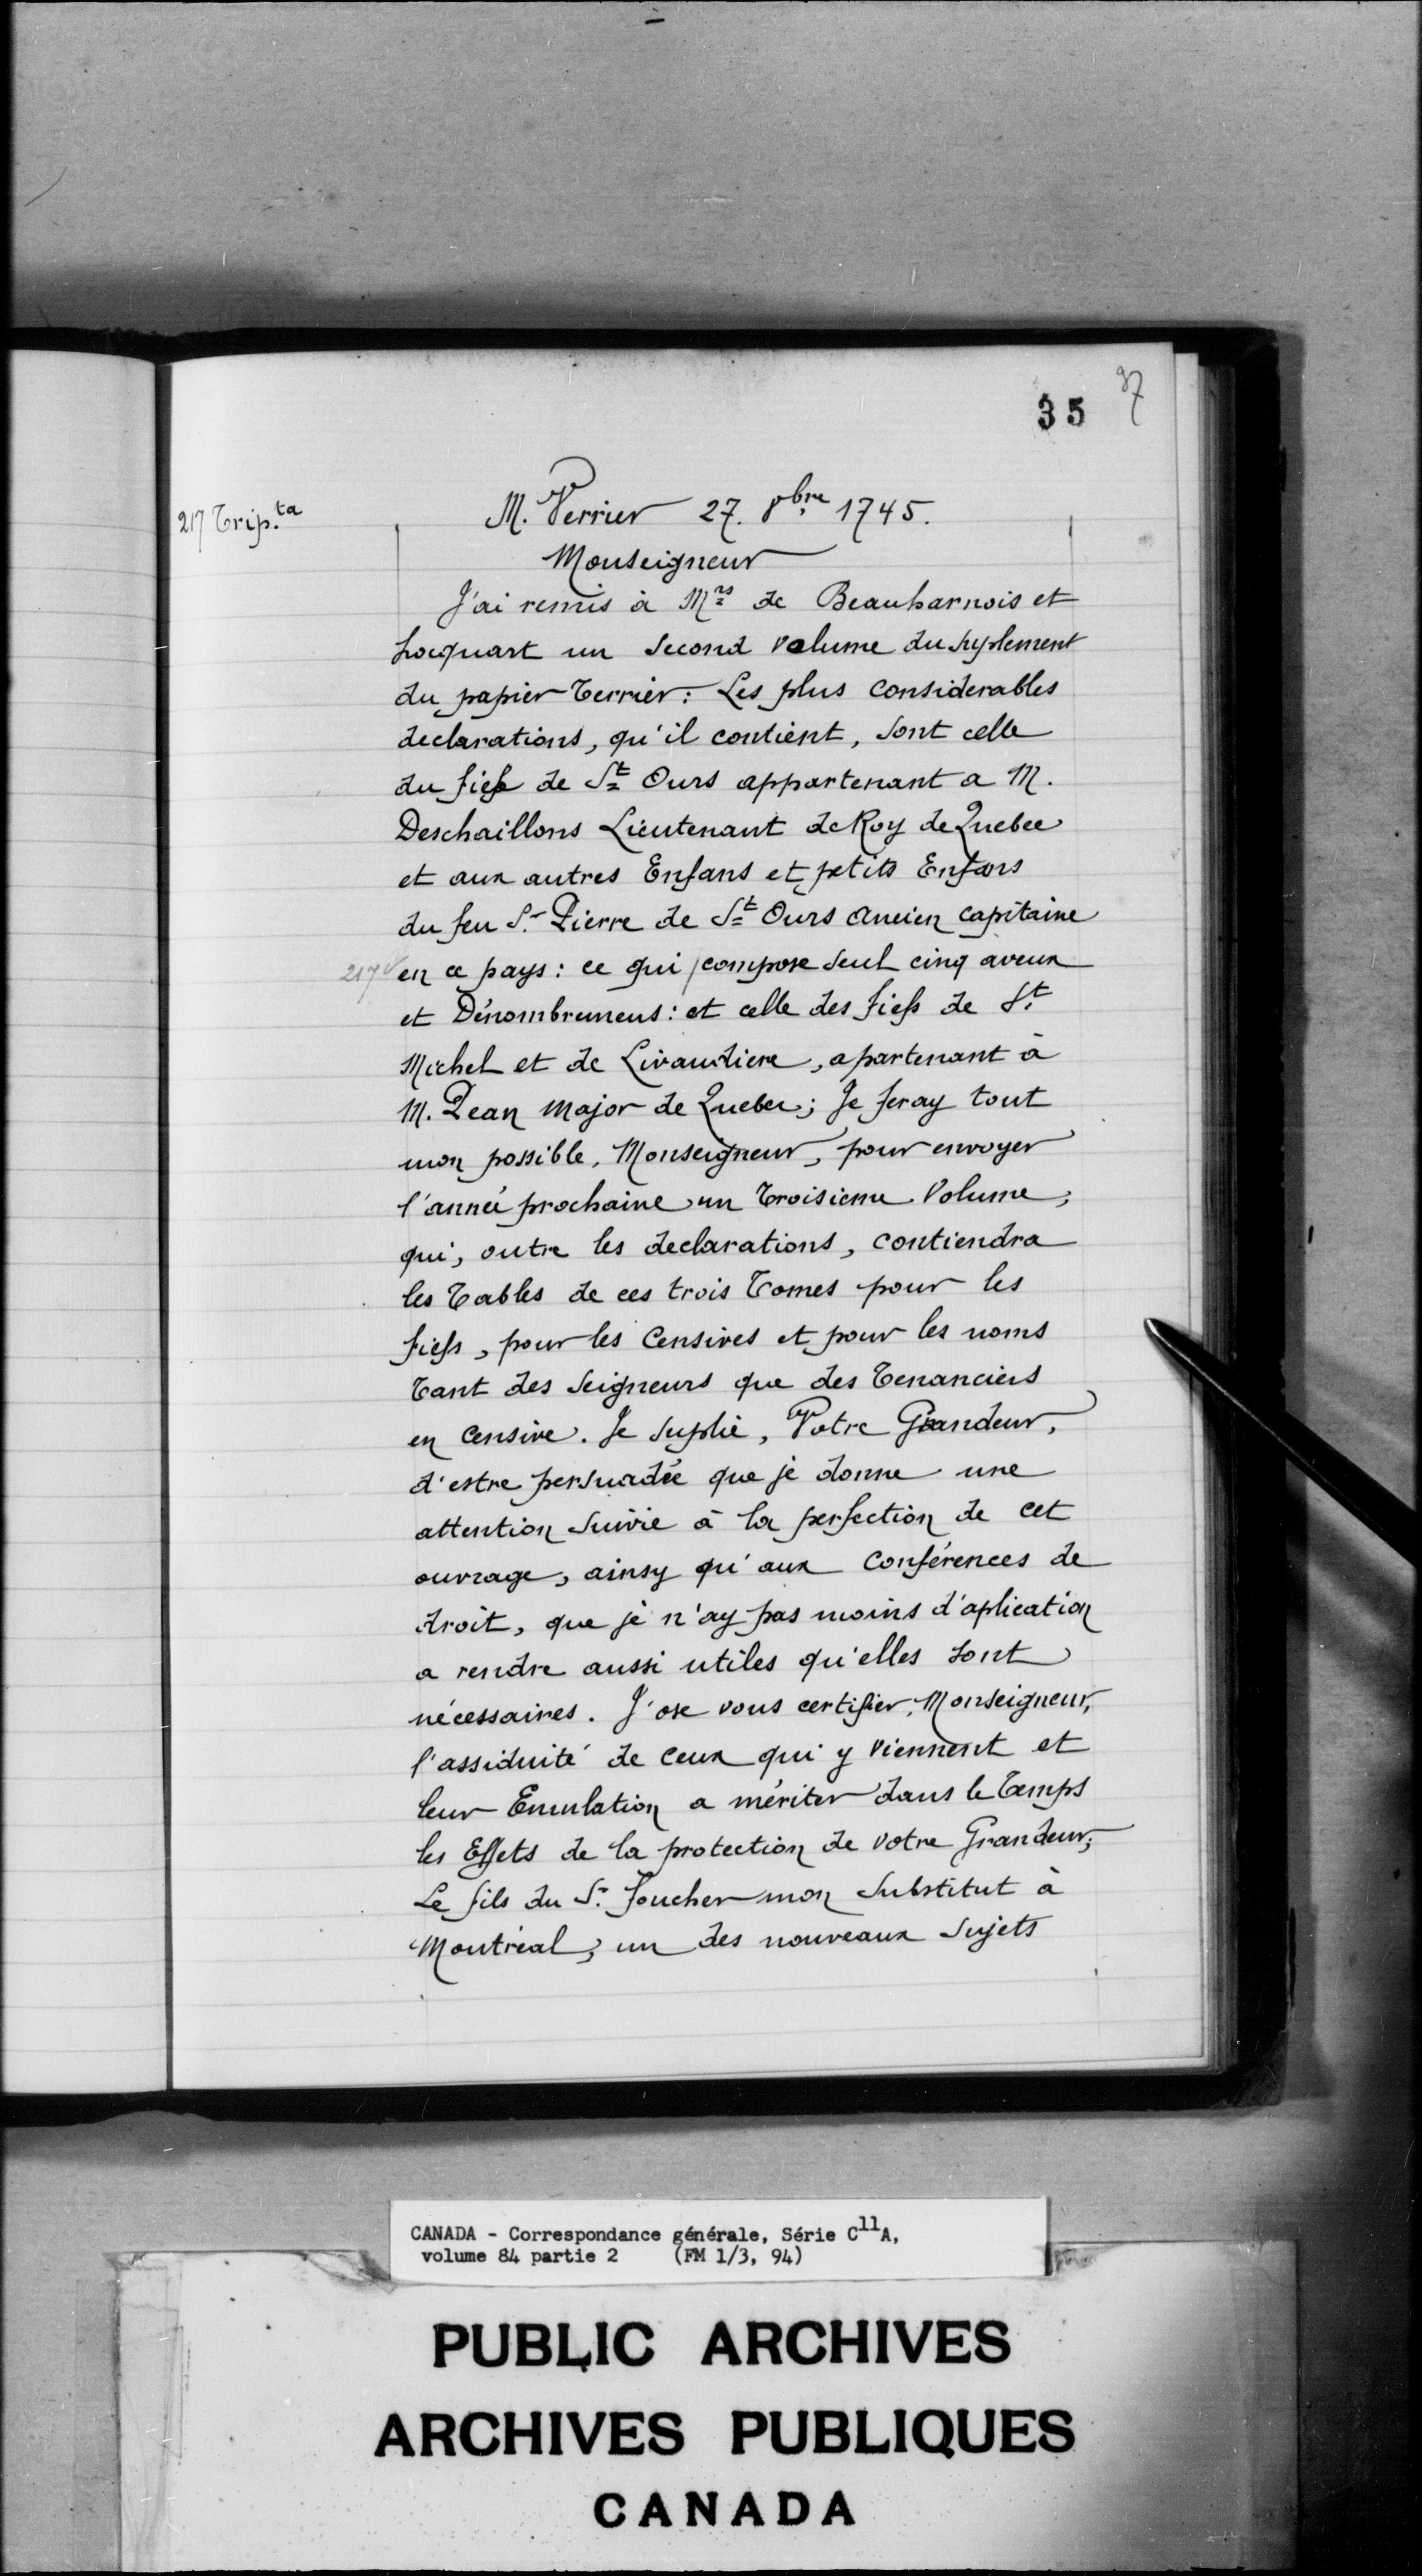 35 97
217 Trip.ta
M. Verrier 27. 8bre 1745.
Monseigneur
J'ai remis à Mrs de Beauharnois et
hocquart un second volume du suplement
du papier Terrier: Les plus considerables
declarations, qu'il contient, sont celle
du fief de St Ours appartenant a M.
Deschaillons Lieutenant de Roy de Quebec
et aux autres Enfans et petits Enfans
du feu Sr Pierre de St Ours ancien capitaine
217v en ce pays: ce qui / compose seul cinq aveux
et Dénombremens: et celle des fiefs de St
Michel et de Livaudiere, apartenant à
M. Pean Major de Quebec; Je feray tout
mon possible, Monseigneur, pour envoyer
l'année prochaine un troisieme Volume,
qui, outre les declarations, contiendra
les Tables de ces trois Tomes pour les
fiefs, pour les Censives et pour les noms
Tant des Seigneurs que des Tenanciers
en Censive. Je suplie, Votre Grandeur,
d'estre persuadée que je donne une
attention suivie à la perfection de cet
ouvrage, ainsy qu'aux Conférences de
droit, que je n'ay pas moins d'aplication
a rendre aussi utiles qu'elles sont
nécessaires. J'ose vous certifier, Monseigneur,
l'assiduité de ceux qui y viennent et
leur Emulation a mériter dans le Temps
les Effets de la protection de votre Grandeur;
Le fils du Sr. Foucher mon Substitut à
Montréal, un des nouveaux Sujets
CANADA - Correspondance générale, Série C11A,
volume 84 partie 2 (FM 1/3, 94)
PUBLIC ARCHIVES
ARCHIVES PUBLIQUES
CANADA